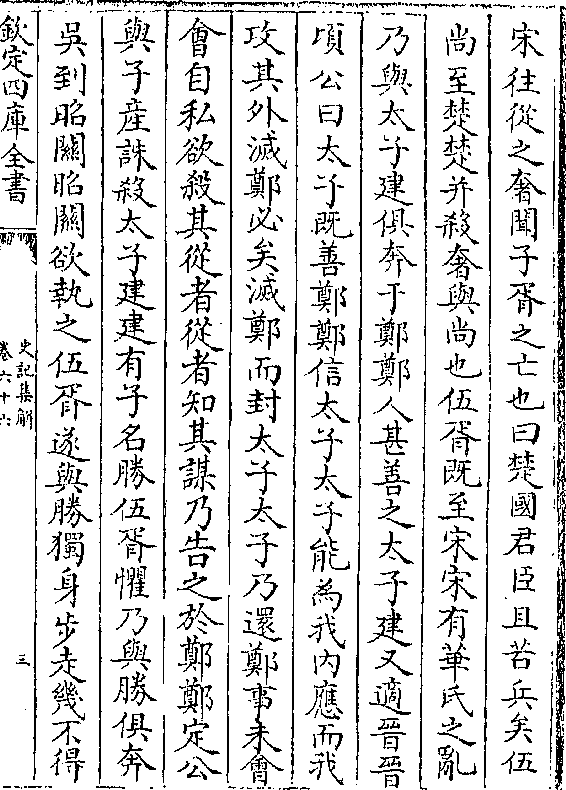 宋往從之奢聞子胥之亡也曰楚國君臣且苦兵矣伍
尚至楚楚并殺奢與尚也伍胥既至宋宋有華氏之亂
乃與太子建俱奔于鄭鄭人甚善之太子建又適晉晉
頃公曰太子既善鄭鄭信太子太子能為我内應而我
攻其外滅鄭必矣滅鄭而封太子太子乃還鄭事未會
會自私欲殺其從者從者知其謀乃告之於鄭鄭定公
與子産誅殺太子建建有子名勝伍胥懼乃與勝俱奔
吳到昭關昭關欲執之伍胥遂與勝獨身步走幾不得
欽定四庫全書
史記集解
卷六十六
三